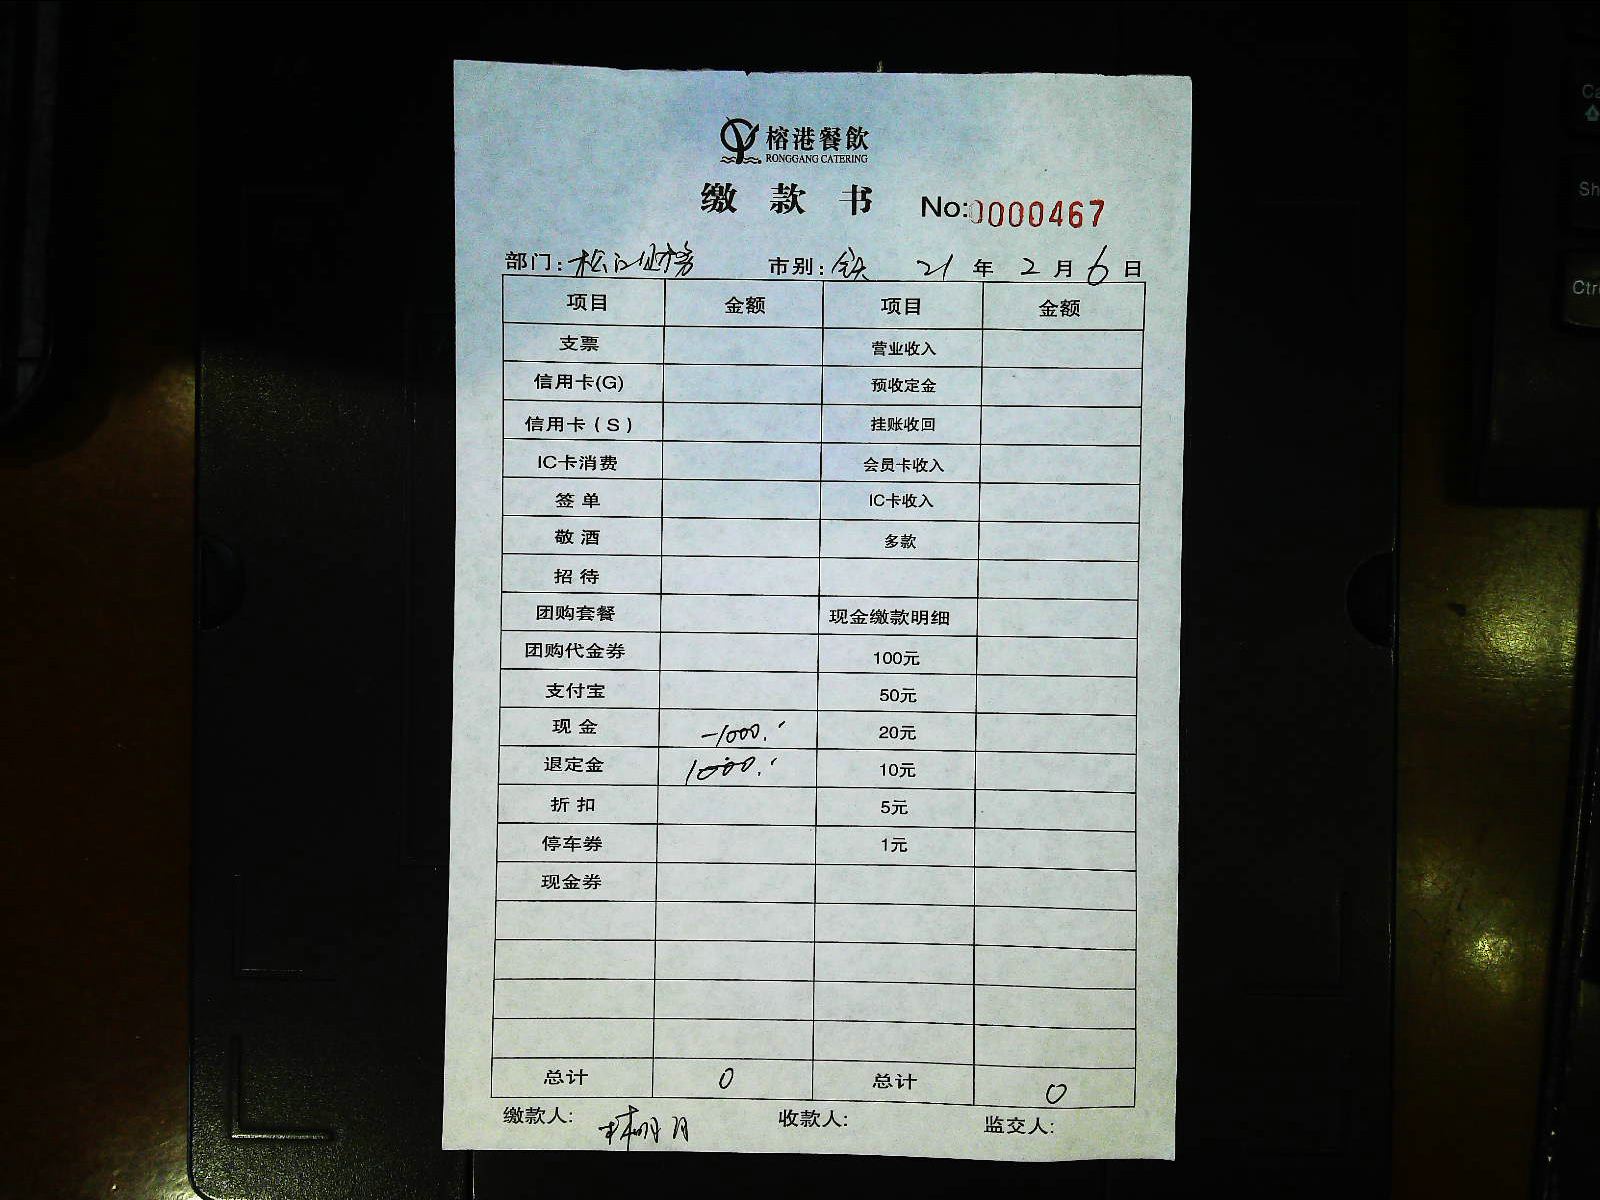 榕港餐飲
RONGGANG CATERING
缴款书 No:0000467
部门:松江财务 市别: 21年2月6日
项目 金额 项目 金额
支票 营业收入
信用卡(G) 预收定金
信用卡(S) 挂账收回
IC卡消费 会员卡收入
签单 IC卡收入
敬酒 多款
招待
团购套餐 现金缴款明细
团购代金券 100元
支付宝 50元
现金 -1000. 20元
退定金 1000. 10元
折扣 5元
停车券 1元
现金券
总计 0 总计 0
缴款人: 林明月 收款人: 监交人: